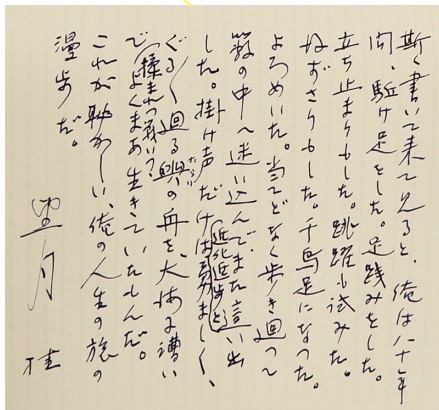 斯く書いて来て見ると、俺は八十年
間、駈け足をした。足踏みをした。
立ち止まりもした。跳躍も試みた。
ずさりもした。千鳥足になつた。
よろめいた。当てどなく歩き廻つて
籔の中へ迷い込んでまた這い出
した。掛け声だけは勇ましく、
ぐる〱廻るたらいの舟を、漕い
でよくまあ生きていたもんだ。
これが恥かしい、俺の人生の旅の
漫歩だ。
望月 桂